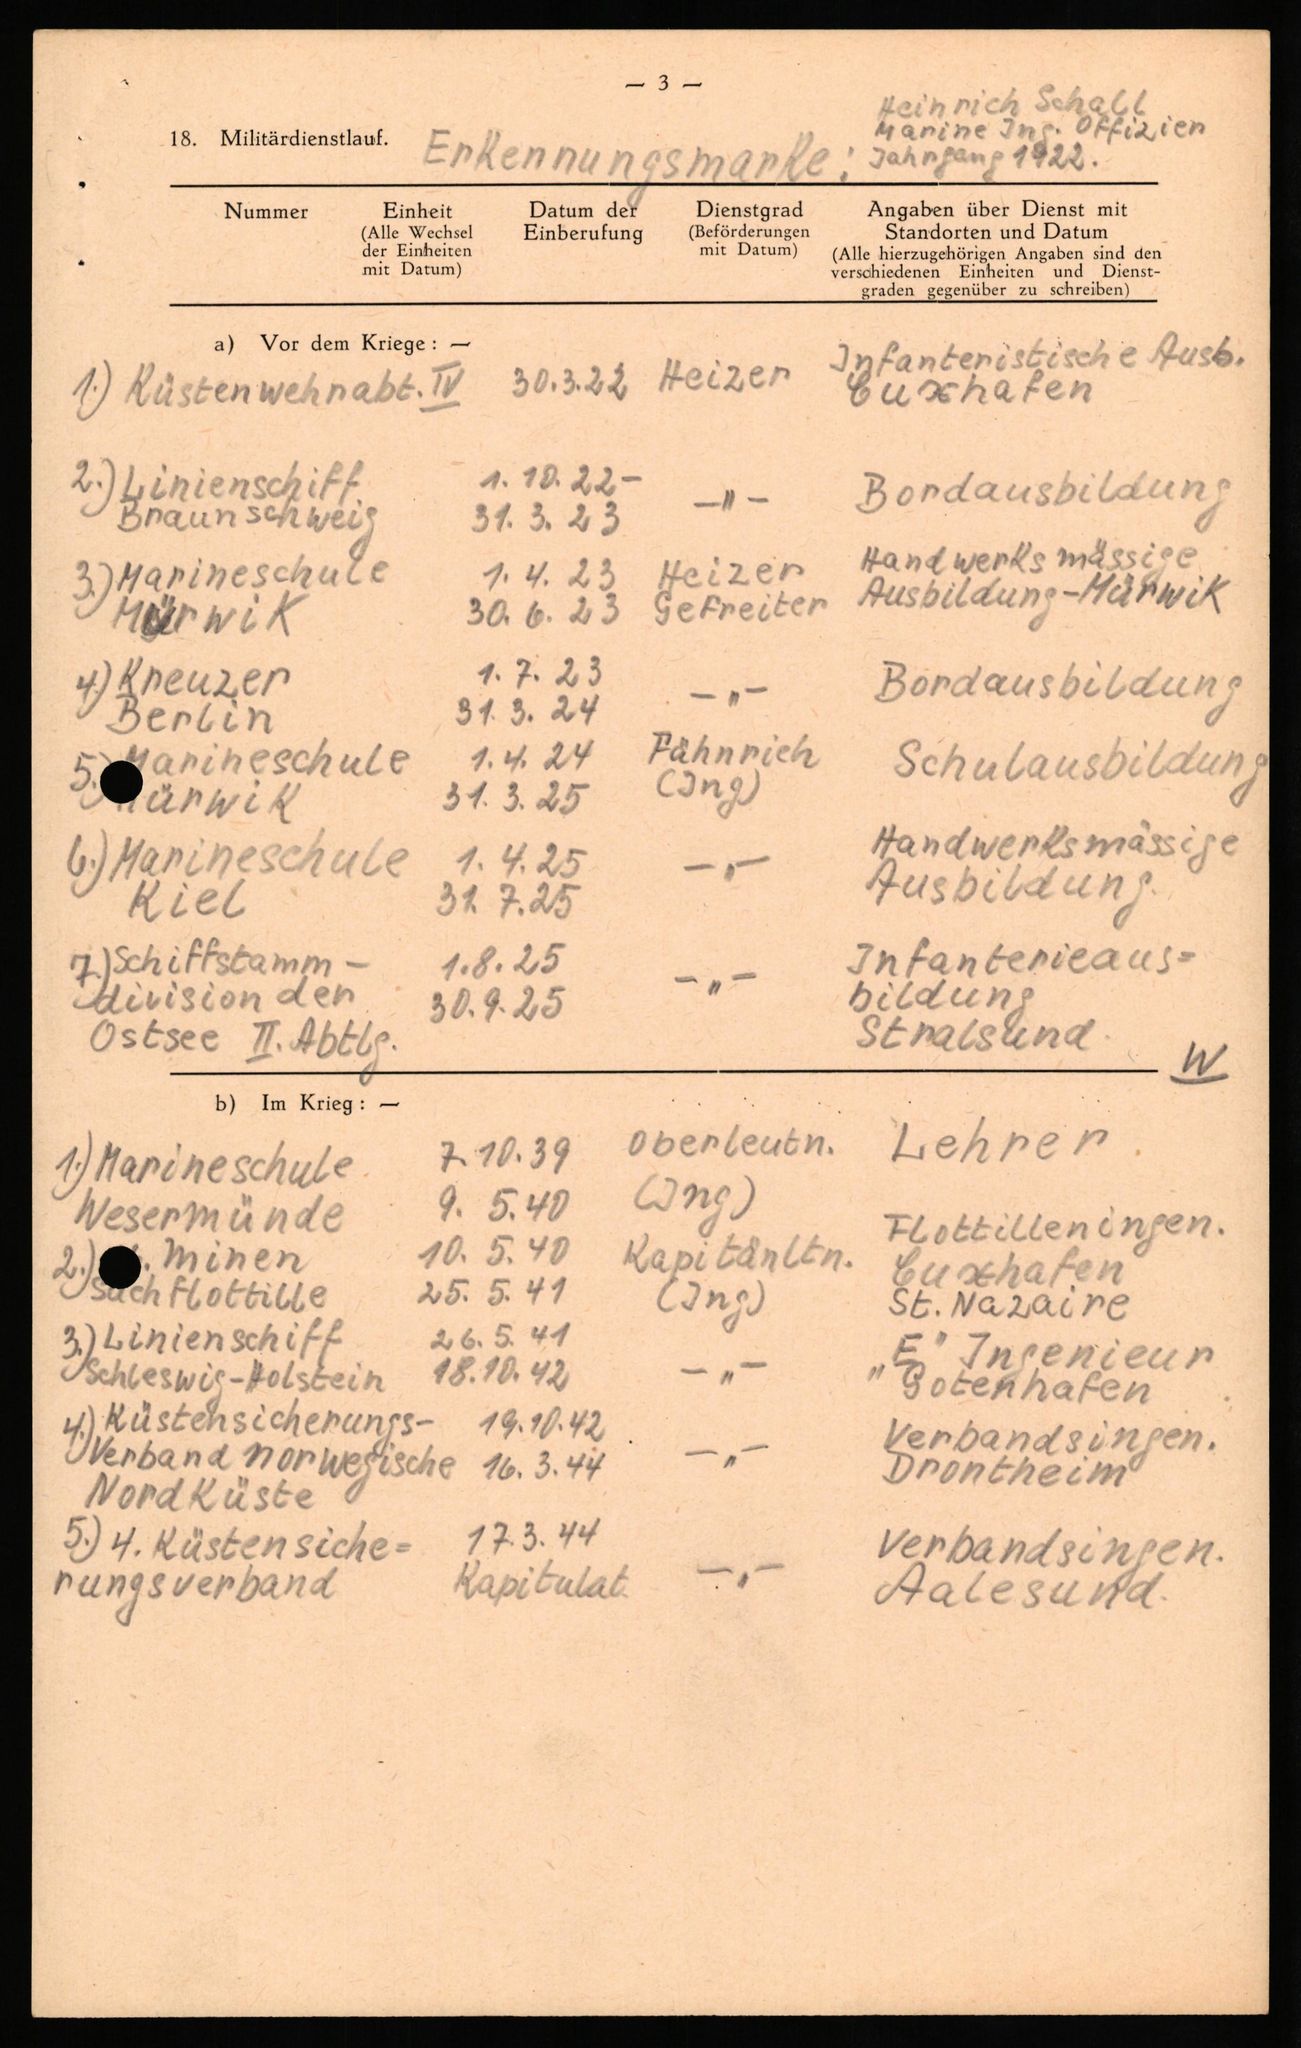 — 3 —
Heinrich Schall
Marine Ing. Offizier
Jahrgang 1922.
18. Militärdienstlauf. Erkennungsmarke:
Nummer
Einheit
(Alle Wechsel
der Einheiten
mit Datum)
Datum der
Einberufung
Dienstgrad
(Beförderungen
mit Datum)
Angaben über Dienst mit
Standorten und Datum
(Alle hierzugehörigen Angaben sind den
verschiedenen Einheiten und Dienst-
graden gegenüber zu schreiben)
a) Vor dem Kriege: —
1.) Küstenwehrabt. IV 30.3.22 Heizer Infanteristische Ausb.
Cuxhafen
2.) Linienschiff 1. 10. 22 – –"– Bordausbildung
Braunschweig 31. 3. 23
3.) Marineschule 1. 4. 23 Heizer Handwerksmässige
Mürwik 30. 6. 23 Gefreiter Ausbildung-Mürwik
4.) Kreuzer 1. 7. 23 –"– Bordausbildung
Berlin 31. 3. 24
5.) Marineschule 1. 4. 24 Fähnrich Schulausbildung
Mürwik 31. 3. 25 (Ing)
6.) Marineschule 1. 4. 25 –"– Handwerksmässige
Kiel 31. 7. 25 Ausbildung.
7.) Schiffstamm- 1. 8. 25 –"– Infanterieaus=
division der 30. 9. 25 bildung
Ostsee II. Abtlg. Stralsund.
W
b) Im Krieg: —
1.) Marineschule 7. 10. 39 Oberleutn. Lehrer
Wesermünde 9. 5. 40 (Ing)
2.) Minen 10. 5. 40 Kapitänltn. Flottilleningen.
Cuxhafen
suchflottille 25. 5. 41 (Ing) St. Nazaire
3.) Linienschiff 26. 5. 41 –"– „E" Ingenieur
Schleswig-Holstein 18. 10. 42 Gotenhafen
4.) Küstensicherungs- 19. 10. 42 –"– Verbandsingen.
Verband Norwegische 16. 3. 44 Drontheim
Nordküste
5.) 4. Küstensiche= 17. 3. 44 –"– Verbandsingen.
rungsverband Kapitulat. Aalesund.